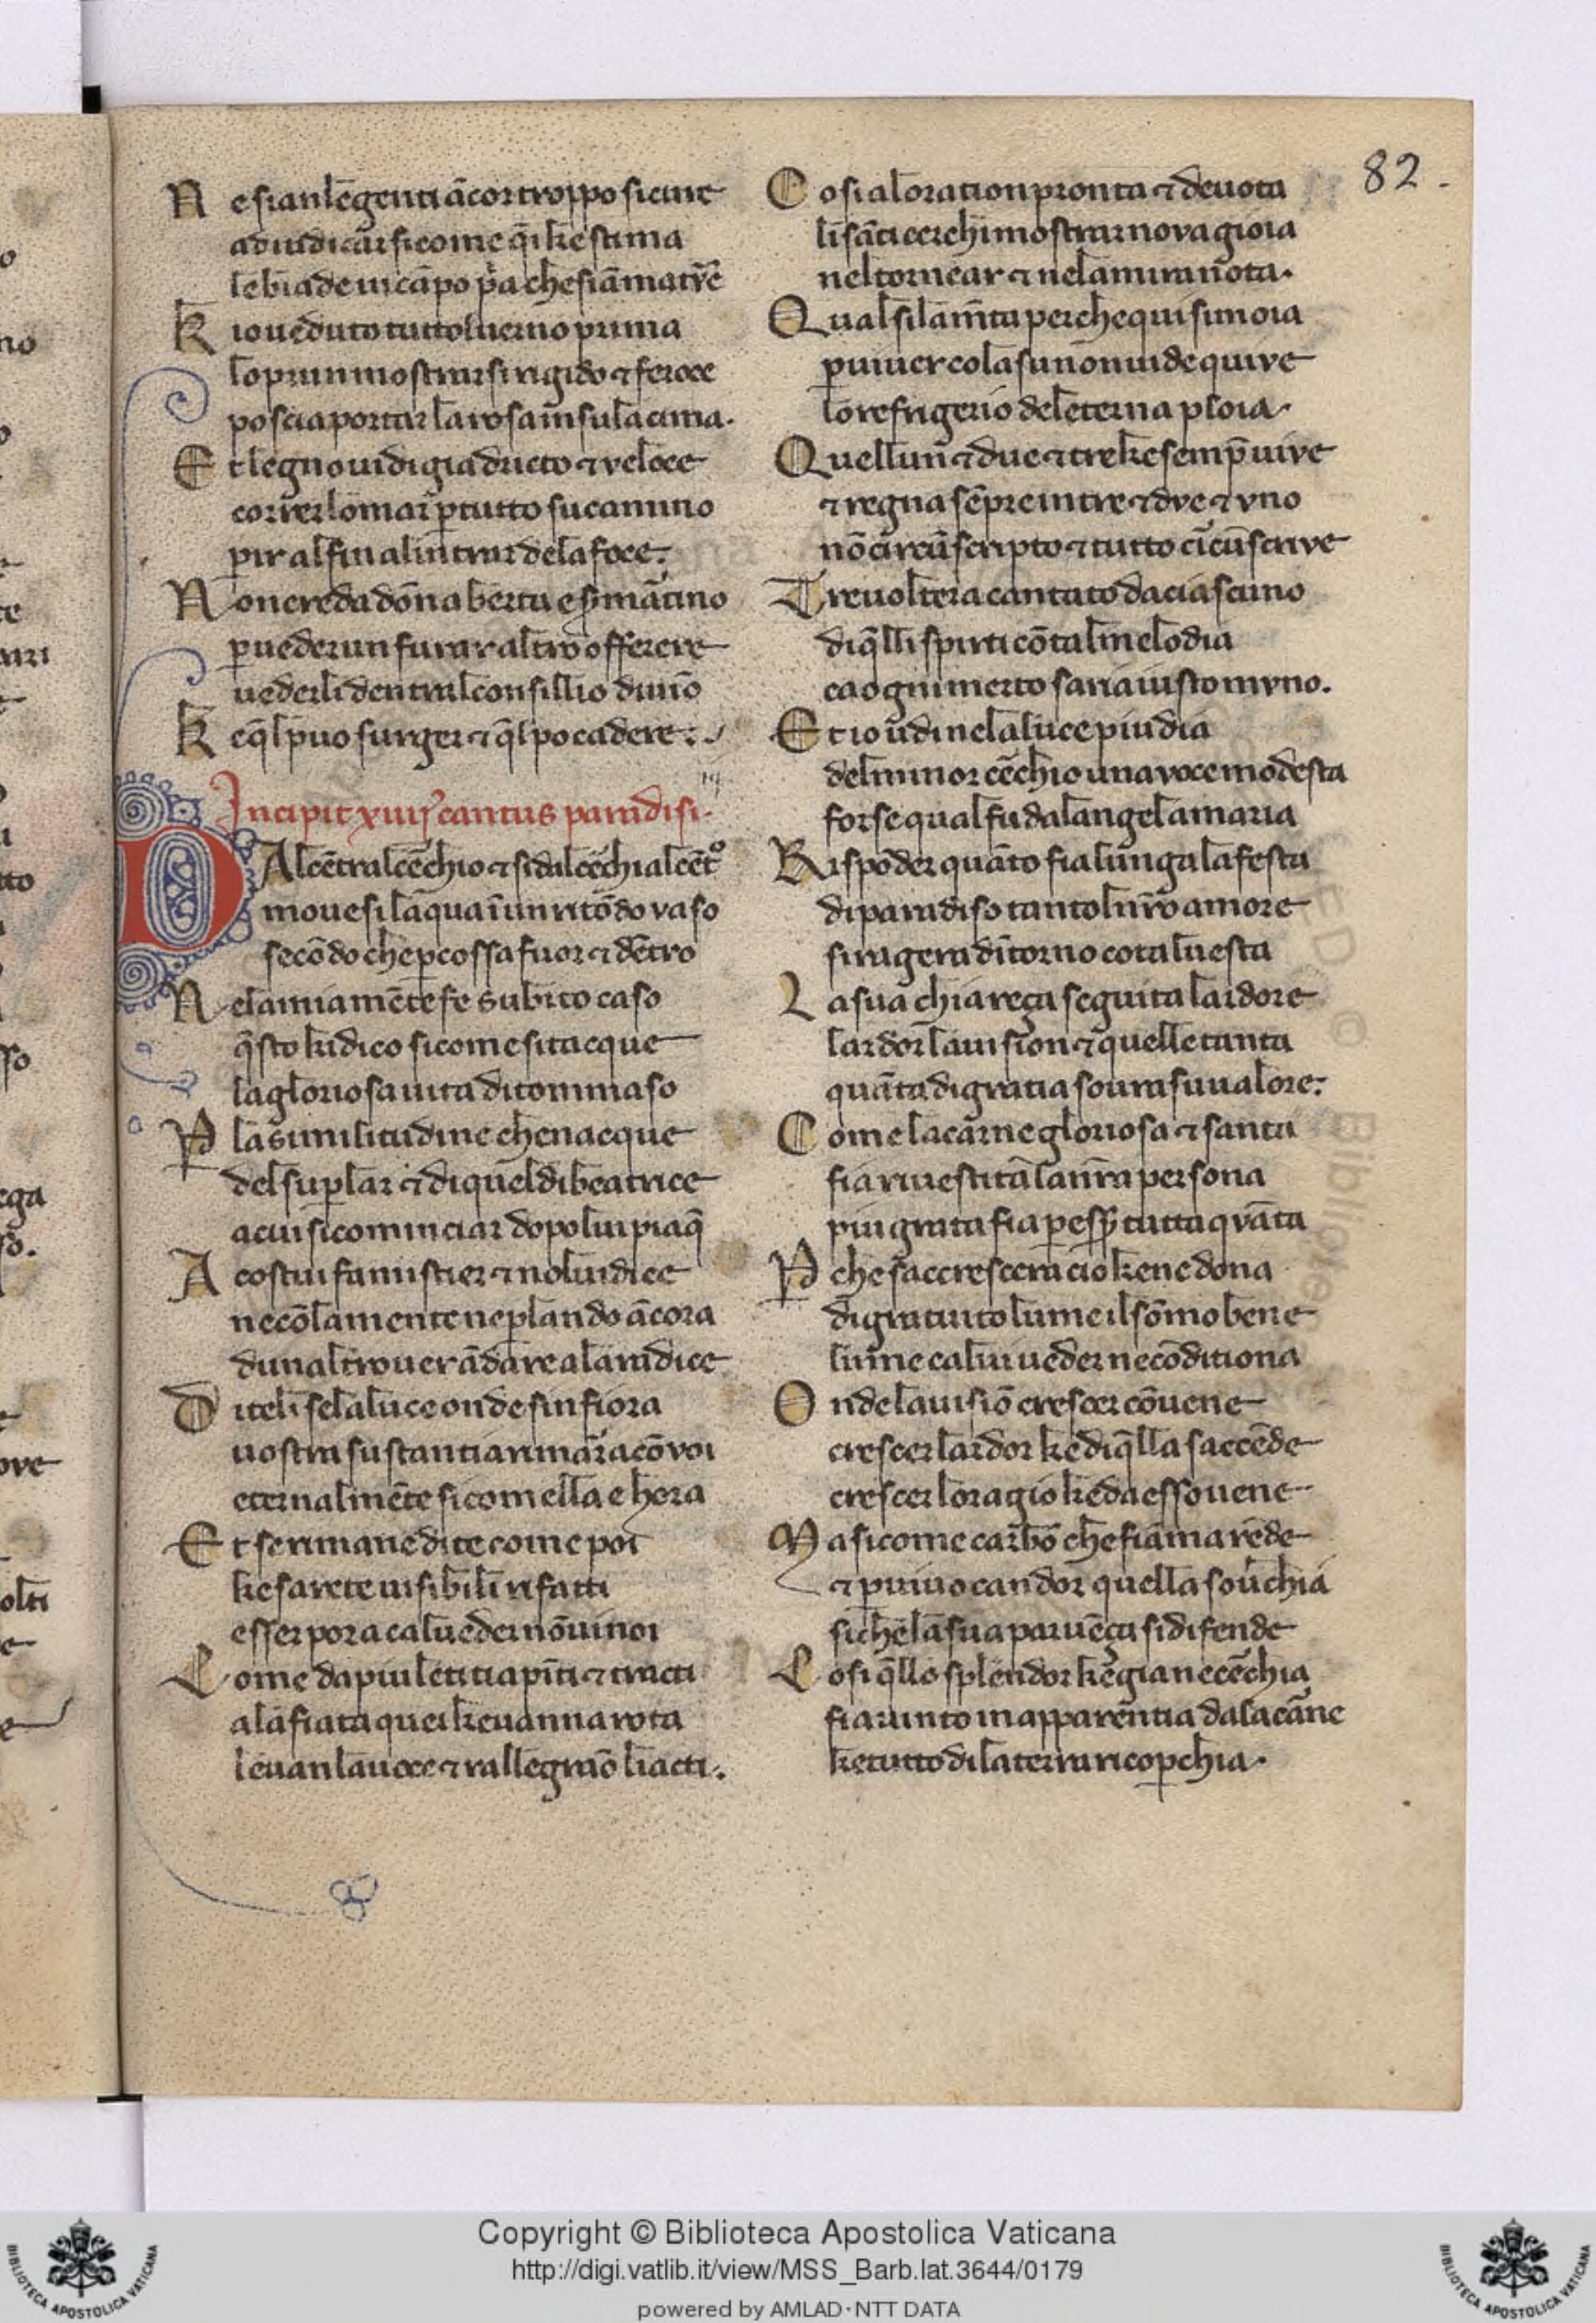 82.
N e sian le genti ācor troppo sicure
a iudicar sicome q̄i ke stima
le biade in cāpo p̄a che siā mature
K io ueduto tutto luerno prima
lo prun mostrarsi rigido ⁊ feroce
poscia portar la rosa in su la cima.
E t legno uidi gia dricto ⁊ veloce
correr lo mar ꝑ tutto su camino
pir al fin al intrar de la foce.
N on creda dōna berta e s̄ martino
ꝑ ueder un furar altro offerere
uederli dentral consillio diuīo
K e q̄l puo surger ⁊ q̄l po cadere.
Incipit xiiij cantus paradisi.
D Al cētral cēchio ⁊ si dal cēchi al cētº
mouesi laqua ī un ritōdo vaso
secōdo che ꝑcossa fuor ⁊ dētro
N e la mia mēte fe subito caso
q̄sto kidico sicome si tacque
la gloriosa uita di tommaso
P la similitudine che nacque
del su ꝑlar ⁊ di quel di beatrice
a cui si cominciar dopo lui piaq̄
A costui fa mistier ⁊ nol ui dice
ne cō la mente ne ꝑlando ācora
dun altro uer ādare a la radice
D iteli se la luce onde sinfiora
uostra sustantia rimarra cō voi
eternalmēte sicomella e hora
E t se rimane dite come poi
ke sarete uisibili rifatti
esser pora cal ueder nō ui noi
C ome da piu letitia pīti ⁊ tracti
a la fiata quei ke uanna rota
leuan la uoce ⁊ rallegrāo li acti.
C osi al oration pronta ⁊ deuota
li sāti cerchi mostrar nova gioia
nel tornear ⁊ ne la mira nota.
Q ual si lamēta perche qui si moia
ꝑ uiuer cola su non uide quive
lo refrigerio de leterna ploia.
Q uell un ⁊ due ⁊ tre ke semp̄ uive
⁊ regna sēpre in tre ⁊ dve ⁊ vno
nō circūscripto ⁊ tutto cīcūscrive
T re uolte era cantato da ciascuno
di q̄lli spirti cō tal melodia
ca ogni merto saria iusto mvno.
E t io udi ne la luce piu dia
del minor cēchio una voce modesta
forse qual fu da langel a maria
R ispōder quāto fia lunga la festa
di paradiso tanto l nr̄o amore
si ragera dītorno cotal uesta
L a sua chiareça seguita lardore
lardor la uision ⁊ quelle tanta
quāta di gratia soura su ualore.
C ome la carne gloriosa ⁊ santa
fia riuestita la nr̄a persona
piu grata fia ꝑ esser tutta qvāta
P che saccrescera cio ke ne dona
di gratuito lume il sōmo bene
lume ca lui ueder ne cōditiona
O nde la uisiō crescer cōuene
crescer lardor ke di q̄lla saccēde
crescer lo ragio ke da esso uene
M a sicome carbō che fiāma rēde
⁊ ꝑ uiuo candor quella souchia
si che la sua paruēça si difende
C osi q̄llo splendor ke gia ne cēchia
fia uinto in apparentia da la carne
ke tutto di la terra ricoꝑchia.
Copyright © Biblioteca Apostolica Vaticana
http://digi.vatlib.it/view/MSS_Barb.lat.3644/0179
powered by AMLAD·NTT DATA